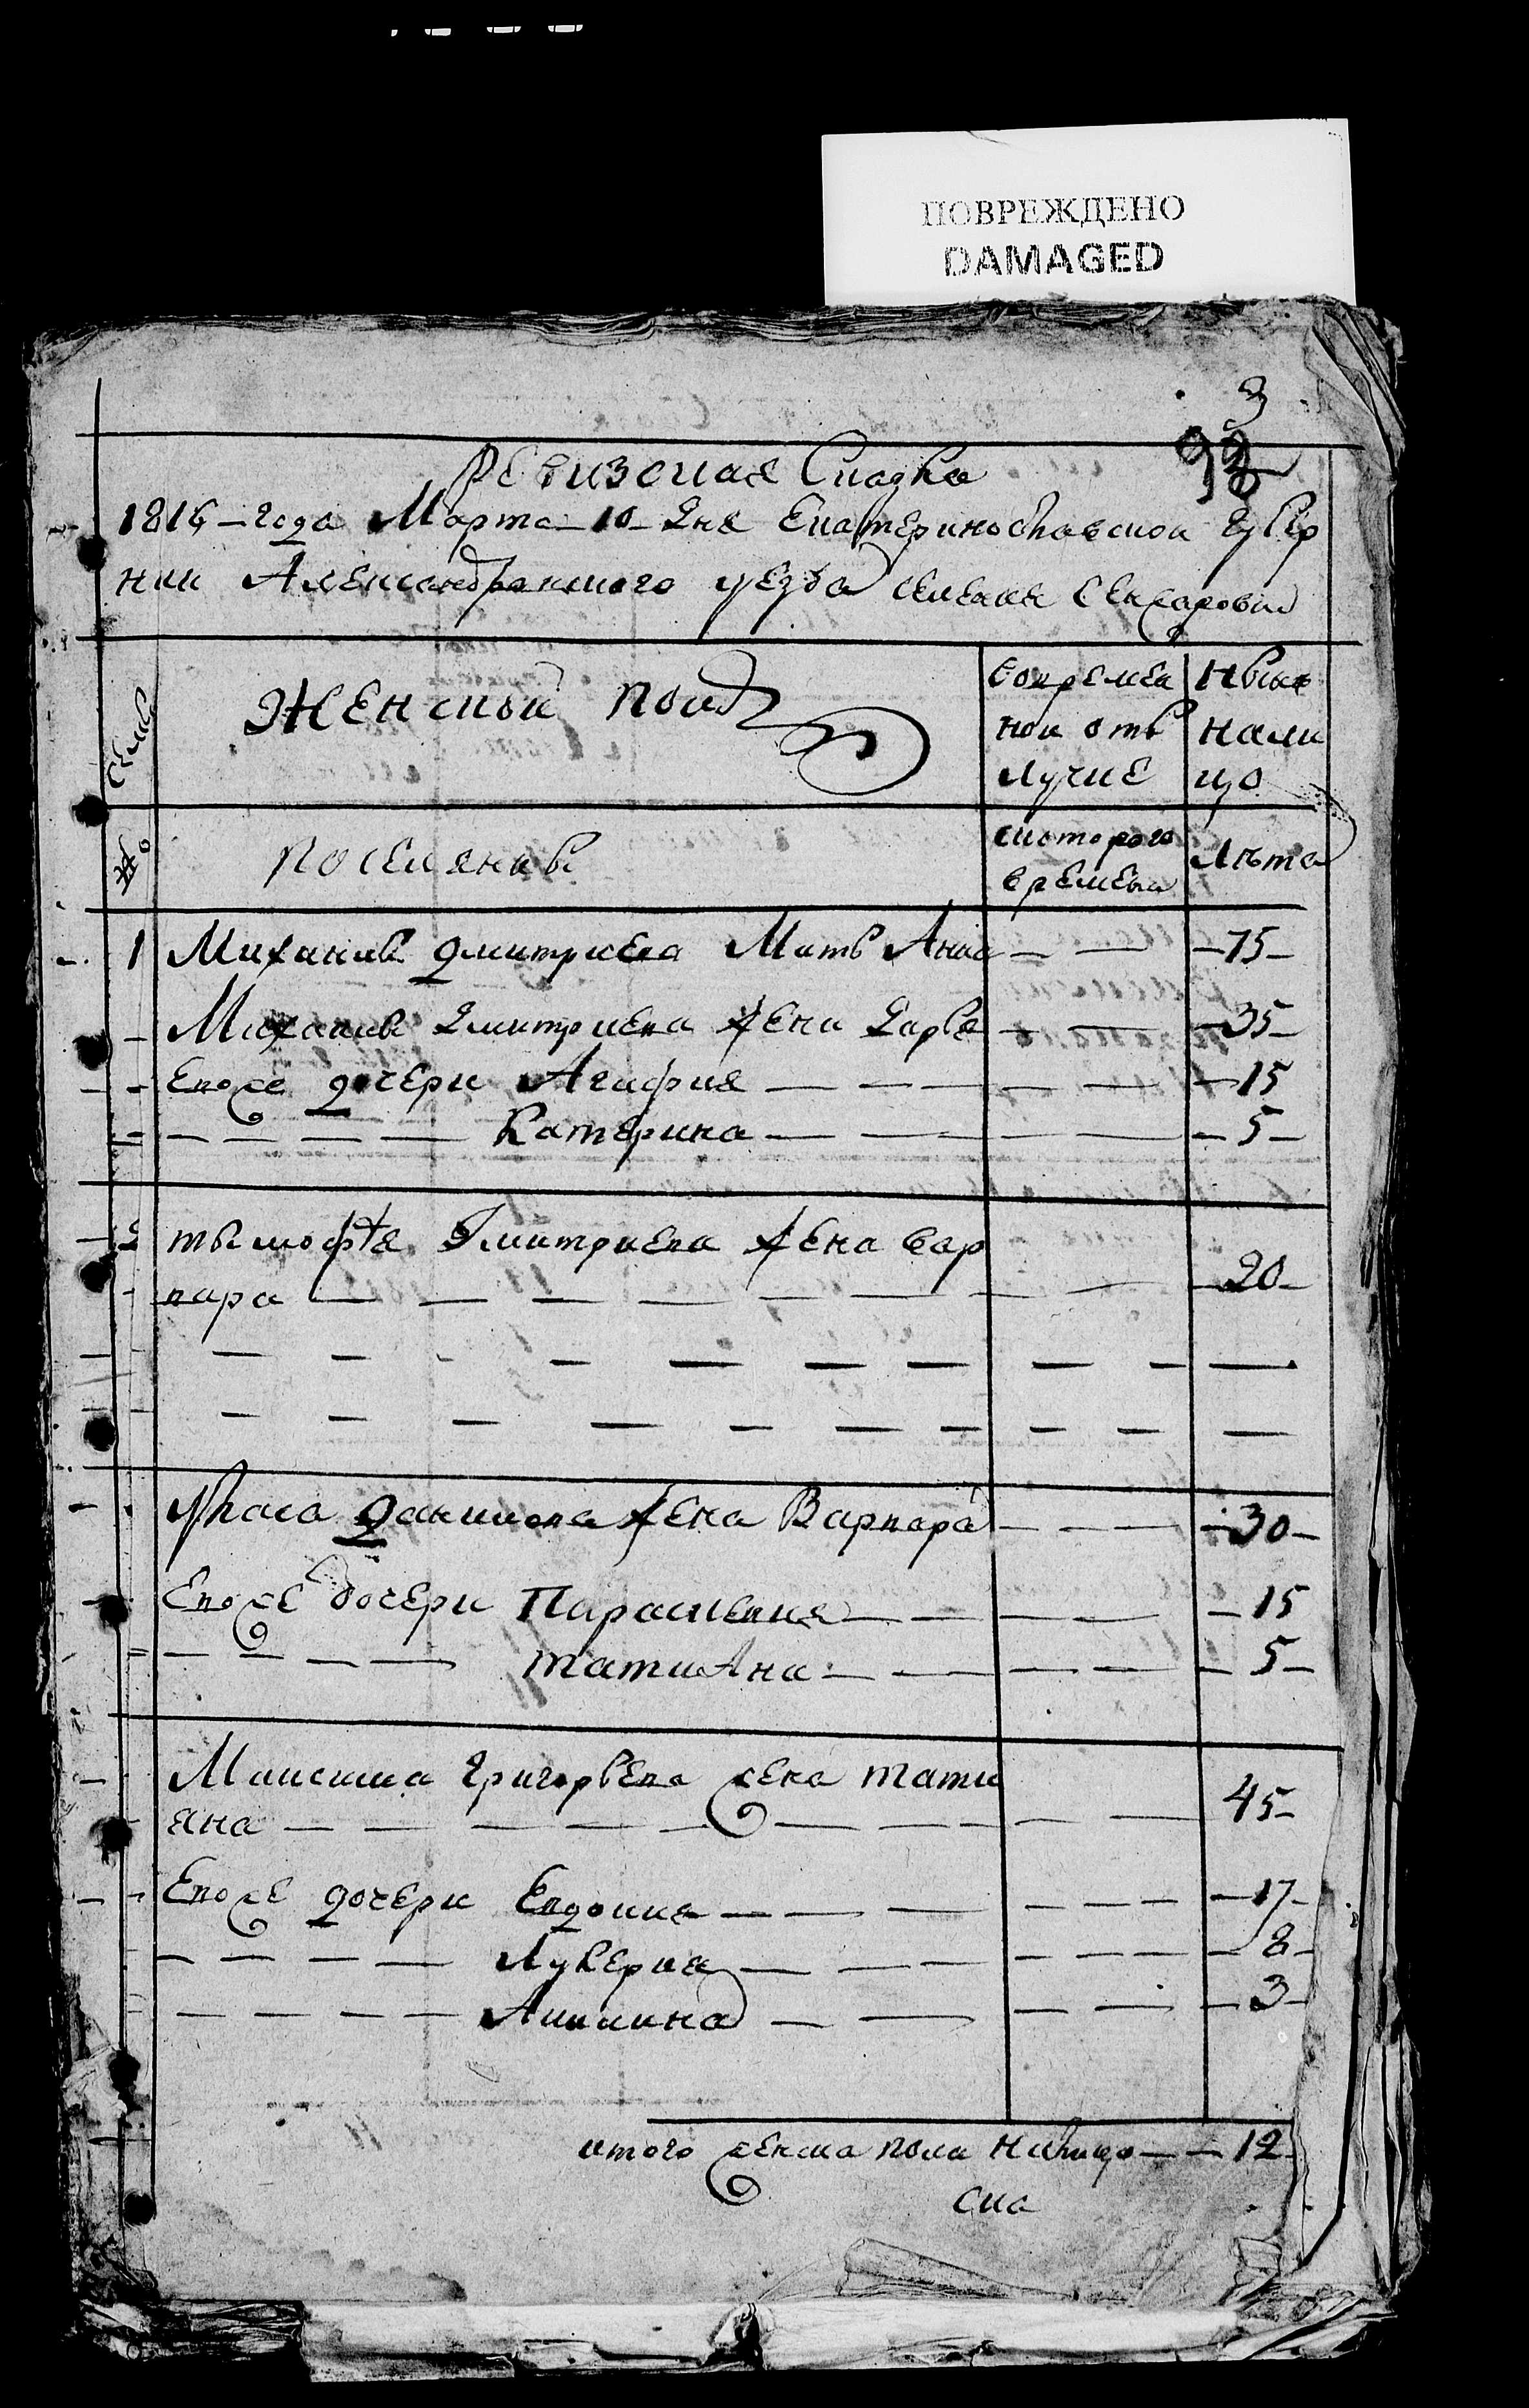 ПОВРЕЖДЕНО
DAMAGED
3
Ревизская Сказка
1816 года Марта 10 дня Екатеринославской Губер
нии Александровского уезда селения
Женской полъ
Семьи
Во времен
ной отъ
лучке
Ныне
нали
цо
№
Поселяновъ
с которого
времени
Лета
1 Михаила Дмитриева Мать Анна — — —75—
Михаила Дмитриева жена Дарья — — —35—
Евоже дочери Агафия — — — — — —15
— — — — Катерина — — — — —5—
2 Тымофея Дмитриева жена вар
вара — — — — — — — — 20—
Власа Данилова жена Варвара — — — —30—
Евоже дочери Парасковия — — — — —15
— — — — татиАна — — — — — —5—
Максима Григорьева жена тати
яна — — — — — — — — — 45—
Евоже дочери Евдокия — — — — — — —17—
— — — — Лукерия — — — — — — —8—
— — — — Акилина — — — — —3—
итого женска пола налицо — —12—
ска